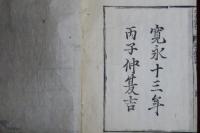 寛永十三年
丙子仲夏吉